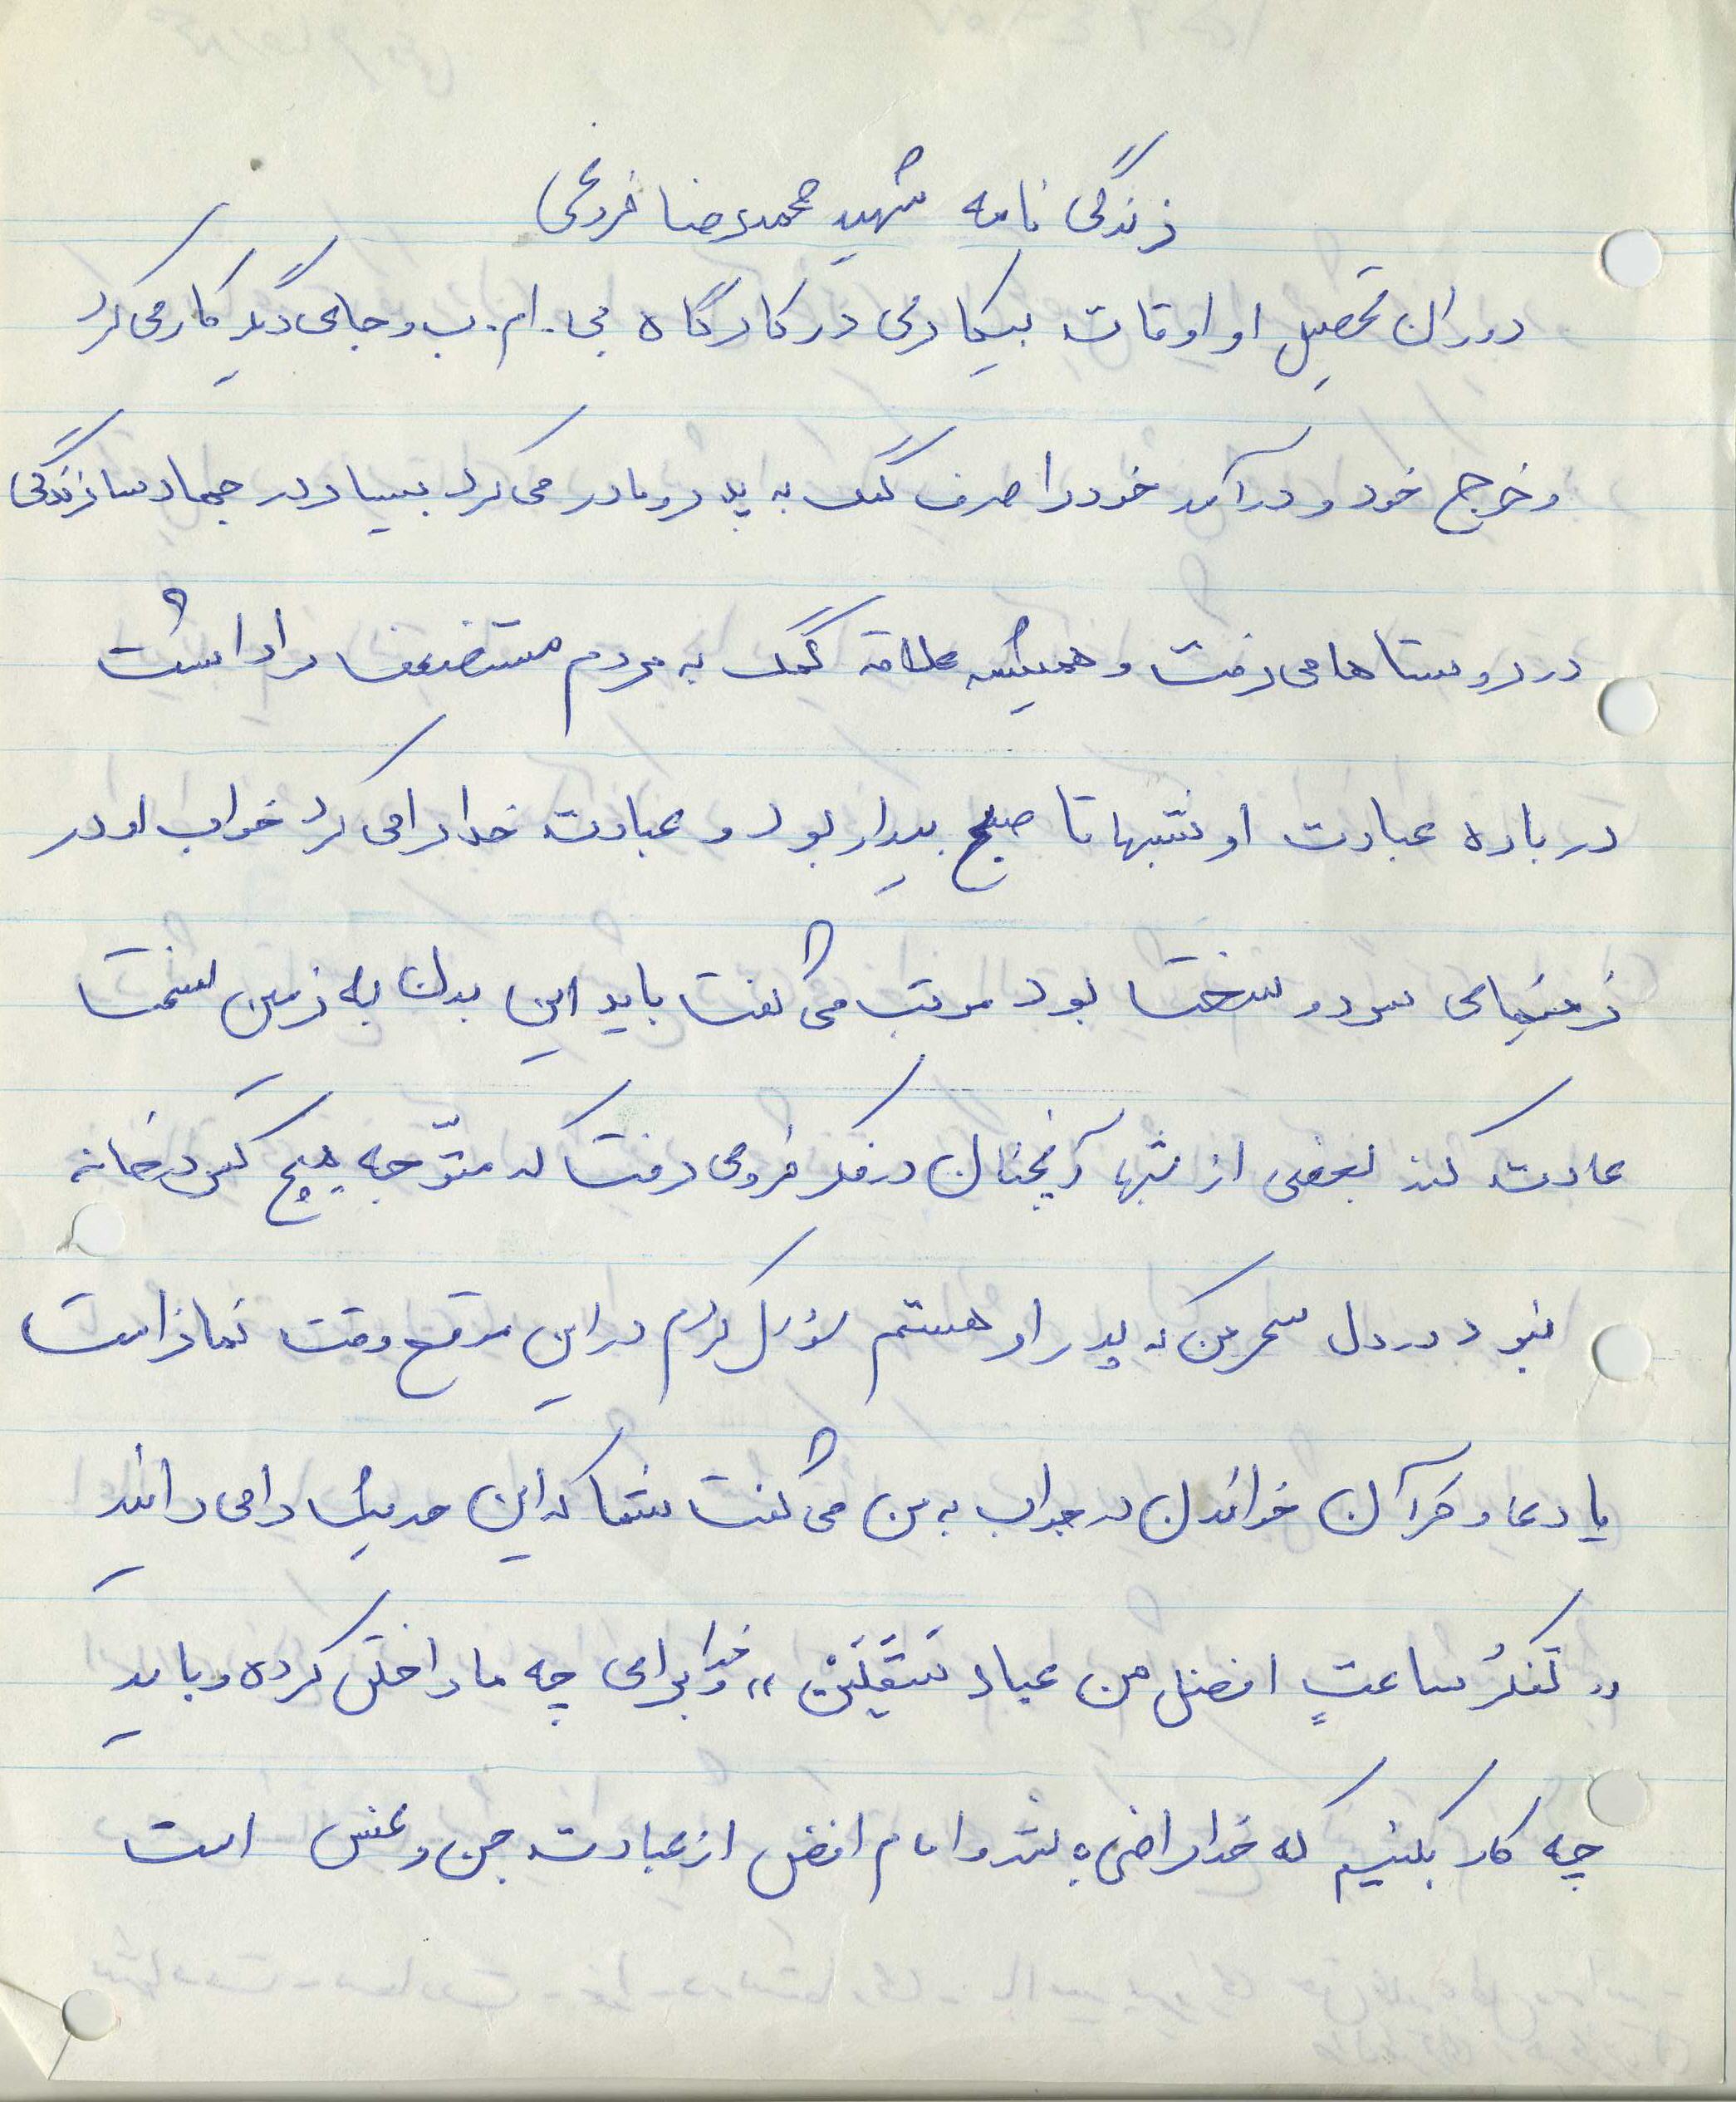 زندگی نامه شهید محمدرضا فروغی
دوران تحصیل او اوقات بیکاری در کارگاه جی.ام.ب و جاهای دیگر کار می کرد
و خرج خود و درآمد خود را صرف کمک به پدر و مادر می کرد بسیار در جهاد سازندگی
در روستاها می رفت و همیشه علاقه کمک به مردم مستضعف را داشت
درباره عبادت او شبها تا صبح بیدار بود و عبادت خدا را می کرد خواب او در
زمینهای سرد و سخت بود مرتب می گفت باید این بدن به زمین سخت
عادت کند بعضی از شبها آنچنان در فکر فرو می رفت که متوجه هیچ کس در خانه
نبود در دل سحر من که پدر او هستم سؤال کردم در این موقع وقت نماز است
یا دعا و قرآن خواندن در جواب به من می گفت شما که این حدیث را می دانید
«تفکرُ ساعتٍ افضل من عباد ثقلین» خدا برای چه ما را خلق کرده و باید
چه کار بکنیم که خدا راضی باشد و امام افضل از عبادت جن و عنس است